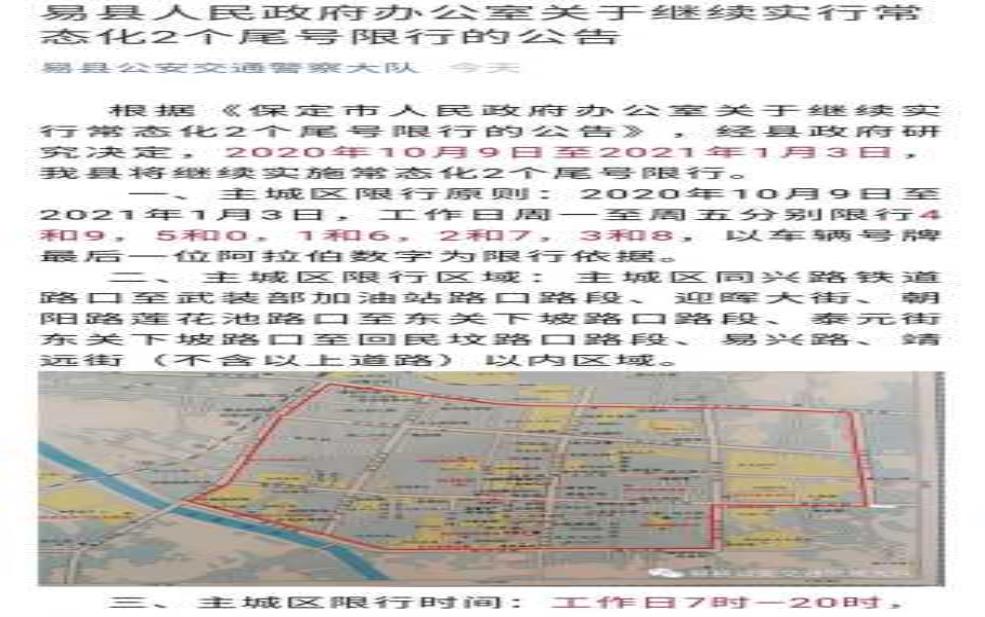 易县人民政府办公室关于继续实行常
态化2个尾号限行的公告
易县公安交通警察大队 今天
根据《保定市人民政府办公室关于继续实
行常态化2个尾号限行的公告》，经县政府研
究决定，2020年10月9日至2021年1月3日，
我县将继续实施常态化2个尾号限行。
一、主城区限行原则：2020年10月9日至
2021年1月3日，工作日周一至周五分别限行4
和9，5和0，1和6，2和7，3和8，以车辆号牌
最后一位阿拉伯数字为限行依据。
二、主城区限行区域：主城区同兴路铁道
路口至武装部加油站路口路段、迎晖大街、朝
阳路莲花池路口至东关下坡路口路段、泰元街
东关下坡路口至回民坟路口路段、易兴路、靖
远街（不含以上道路）以内区域。
三、主城区限行时间：工作日7时—20时，